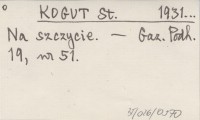 KOGUT St. 1931...
Na szczycie. — Gaz. Podh.
19, nr 51.